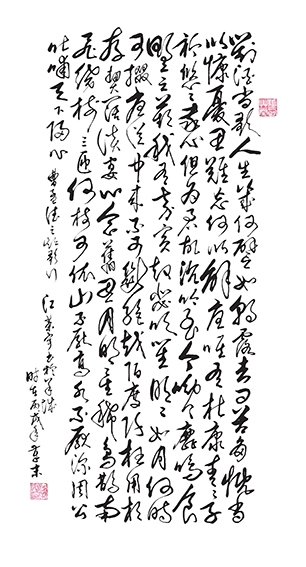 對酒當歌人生幾何譬如朝露去日苦多慨當
以慷憂思難忘何以解憂唯有杜康青青子
衿悠悠我心但為君故沉吟至今呦呦鹿鳴食
野之苹我有嘉賓鼓瑟吹笙明明如月何時
可掇憂從中來不可斷絕越陌度阡枉用相
存契闊談讌心念舊恩月明星稀烏鵲南
飛繞樹三匝何枝可依山不厭高水不厭深周公
吐哺天下歸心 曹孟德之短歌行
時在丙戌年